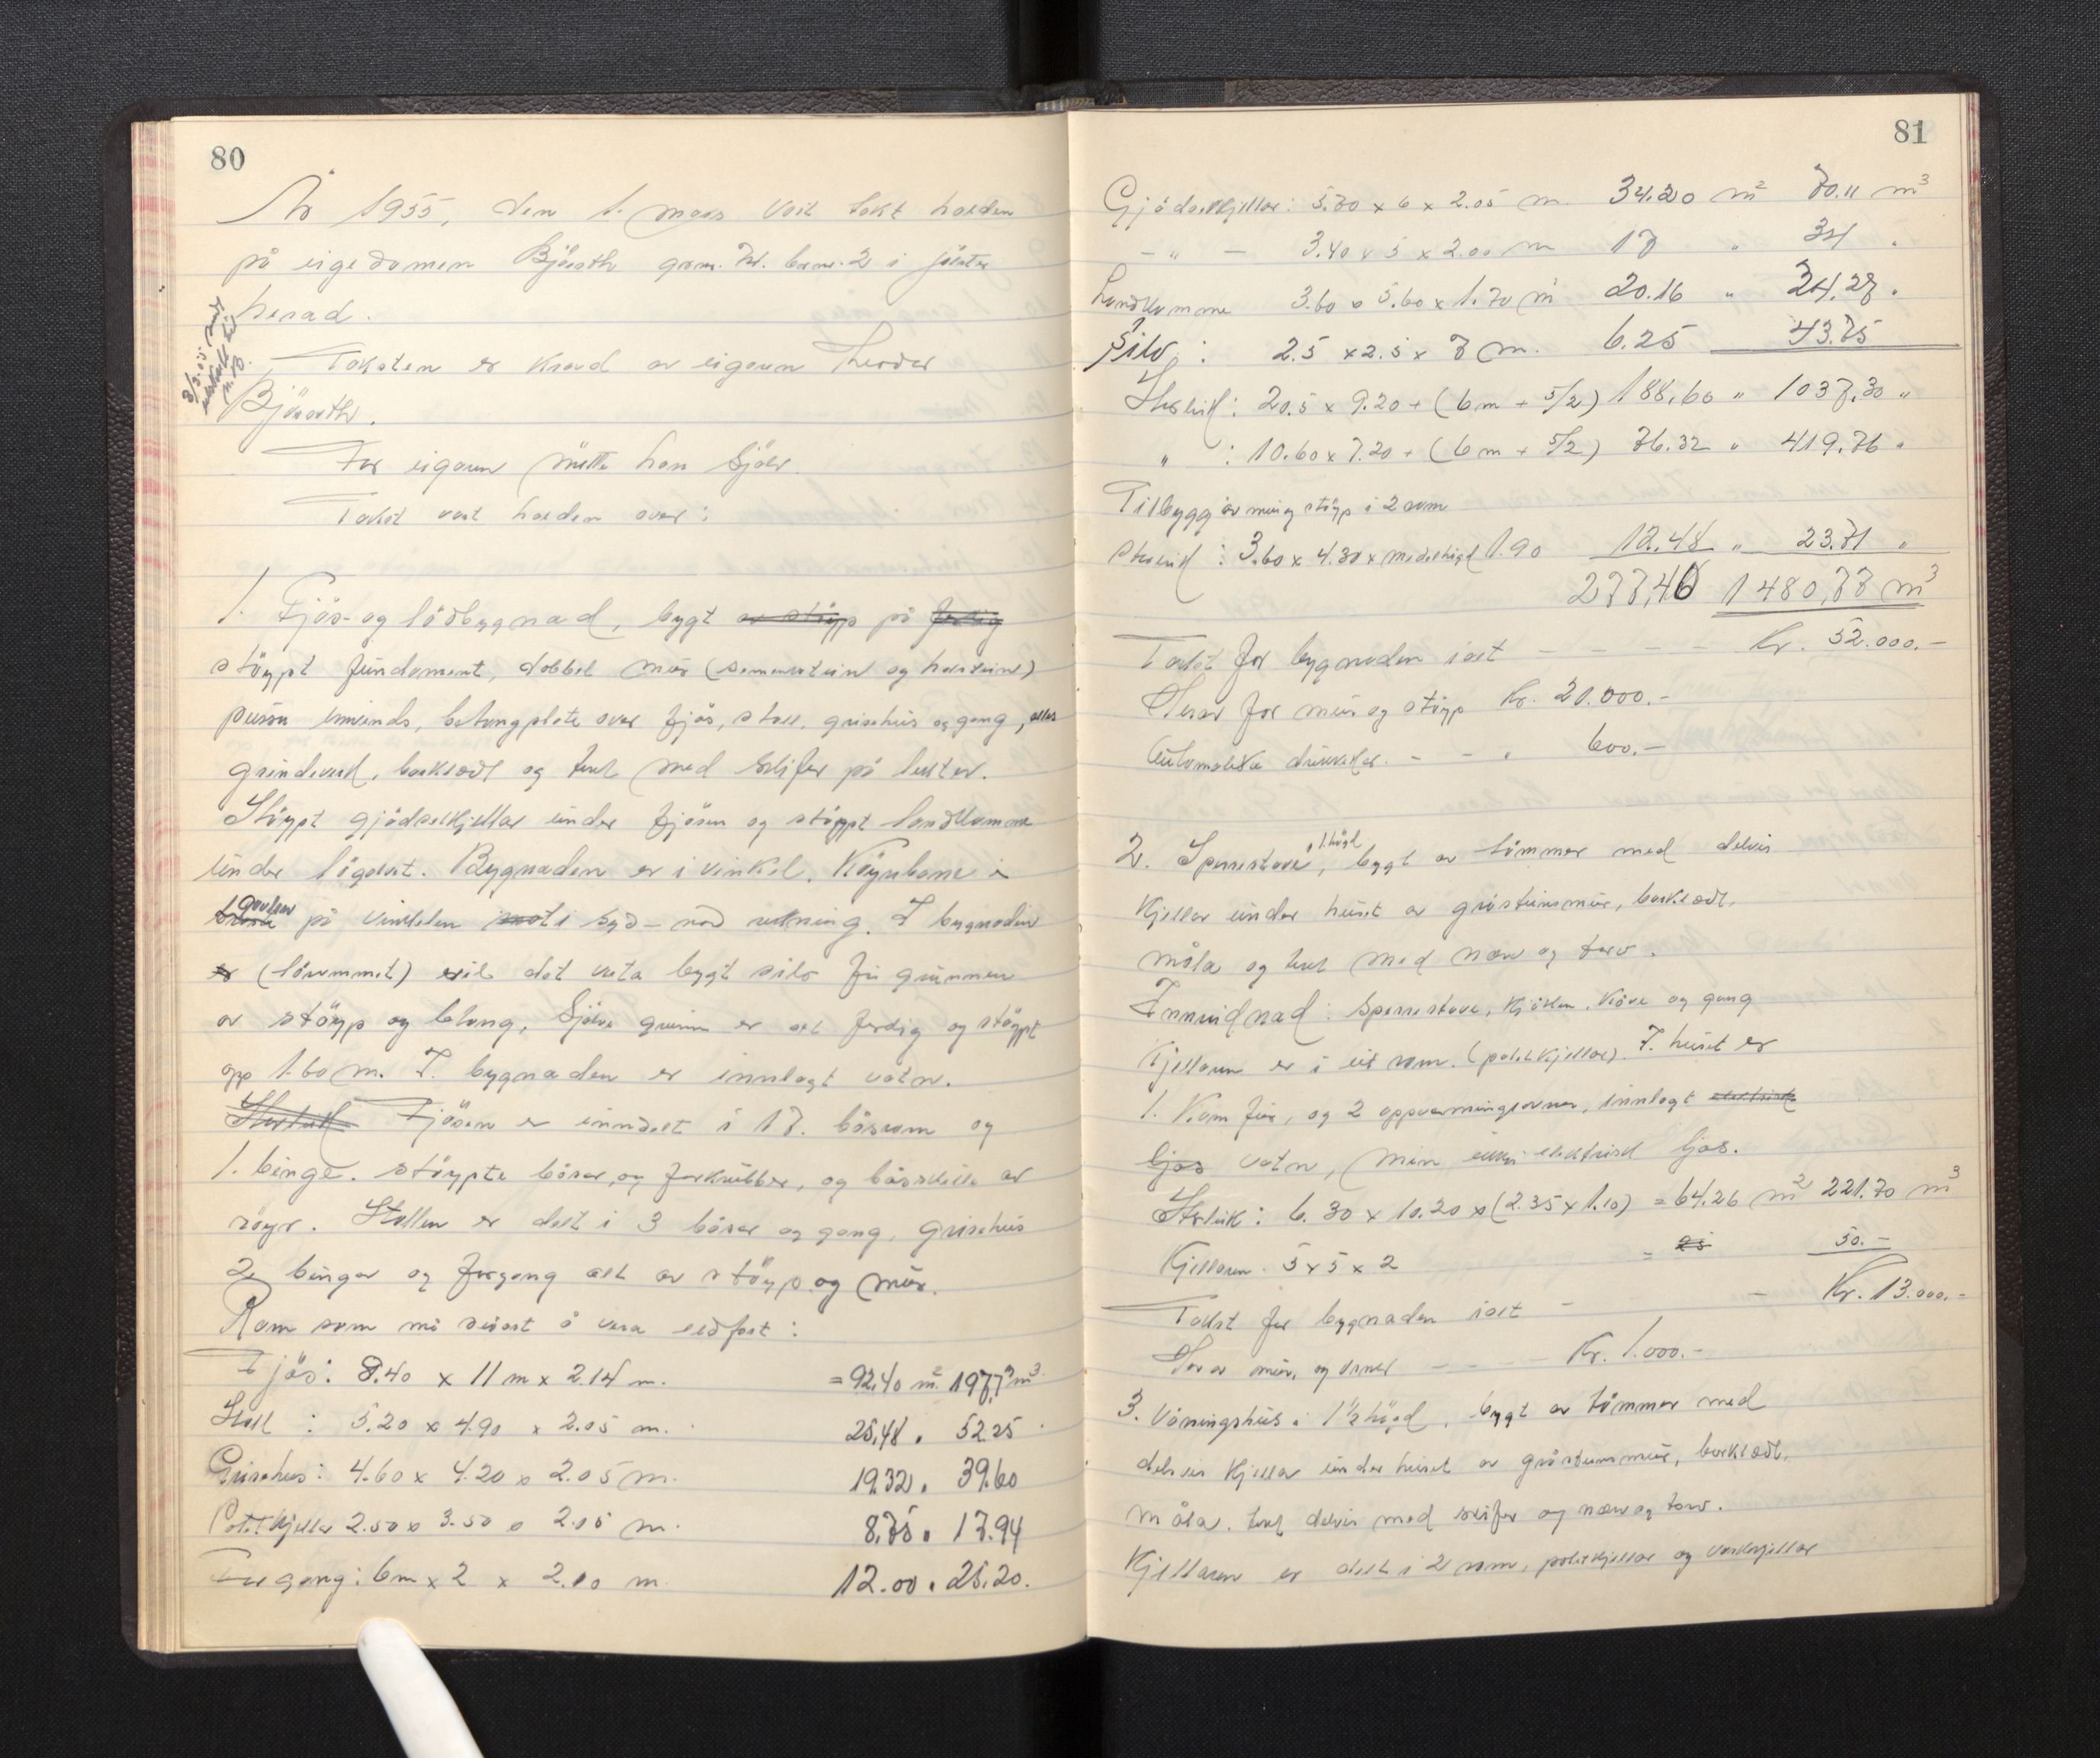 80
År 1955, den 1. mars vart takst halden
på eigedomen Bjåstth gnr. br.nr. 2 i Jølster
herad.
8/3-55
Taksten er kravd av eigaren
For eigaren møtte han sjølv.
Takst vart halden over:
1. Fjøs- og lødbygnad, bygt av støyp på ferdig
støypt fundament, dobbel mur (sementstein og holstein)
pussa innvends, betongplate over fjøs, stall, grisehus og gang, elles
grindverk, bordkledt og tekt med skifer på lekter.
Støypt gjødselkjellar under fjøsen og støypt landkumme
under lågolvet. Bygnaden er i vinkel. Køyrebane i
på vinkelen i syd-nord retning. I bygnaden
er (lørummet) vil det verta bygt silo frå grunnen
av støyp og betong. Sjølve grunnen er alt ferdig og støypt
opp 1.60 m. I bygnaden er innlagt vatn.
Storleik Fjøsen er inndelt i 17. båsrom og
1. binge. støypte båsar, og forkrubber, og båsskille av
røyr. Stallen er delt i 3 båsar og gang, grisehus
2 bingar og forgang alt av støyp og mur.
Rom som må reknast å vera eldfast:
Fjøs: 8.40 x 11 m x 2.14 m. = 92.40 m² 197,7 m³
Stall: 5.20 x 4.90 x 2.05 m. 25,48 " 52.25 "
Grisehus: 4.60 x 4.20 x 2.05 m. 19.32 " 39.60
Potetkjellar 2.50 x 3.50 x 2.05 m. 8,75 " 17.94
Forgang: 6 m x 2 x 2.10 m 12.00 " 25.20.
81
Gjødselkjellar: 5.70 x 6 x 2.05 m. 34.20 m² 70.11 m³
- " - 3.40 x 5 x 2.00 m 17 " 34 "
Landkumme 3.60 x 5.60 x 1.70 m 20.16 " 34.27 "
Silo: 2.5 x 2.5 x 7 m. 6.25 43.75
Storleik: 20.5 x 9.20 + (6 m + 5/2) 188,60 " 1037,30 "
" : 10.60 x 7.20 + (6 m + 5/2) 76.32 " 419.76 "
Tilbygg av mur og støyp i 2 rom
Storleik: 3.60 x 4.30 x medelhøgd 1.90 12.48 " 23.71 "
277,40 1480,77 m³
Takst for bygnaden i alt - - - - Kr. 52.000.-
Herav for mur og støyp Kr. 21.000.-
Automatiske drikkekar. - - " 600.-
2. Sperrestove, 1. høgd, bygt av tømmer med delvis
kjellar under huset av gråsteinsmur, bordkledt,
måla og tekt med næver og torv.
Innreidnad: Sperrestove, kjøken, kove og gang
Kjellaren er i eit rom. (potetkjellar). I huset er
1. komfur, og 2 oppvarmingsovnar, innlagt elektrisk
ljos vatn, men ikkje elektrisk ljos.
Storleik: 6.30 x 10.20 x (2.35 x 1.10) = 64.26 m² 221.70 m³
Kjellaren. 5 x 5 x 2 = 25 50.-
Takst for bygnaden i alt - - Kr. 13.000.-
Herav mur, og omnar - - - - Kr. 1.000.-
3. Våningshus i 1½ høgd, bygt av tømmer med
delvis kjellar under huset av gråsteinsmur, bordkledt,
måla. tekt delvis med skifer og næver og torv.
Kjellaren er delt i 2 rom, potetkjellar og vaskekjellar